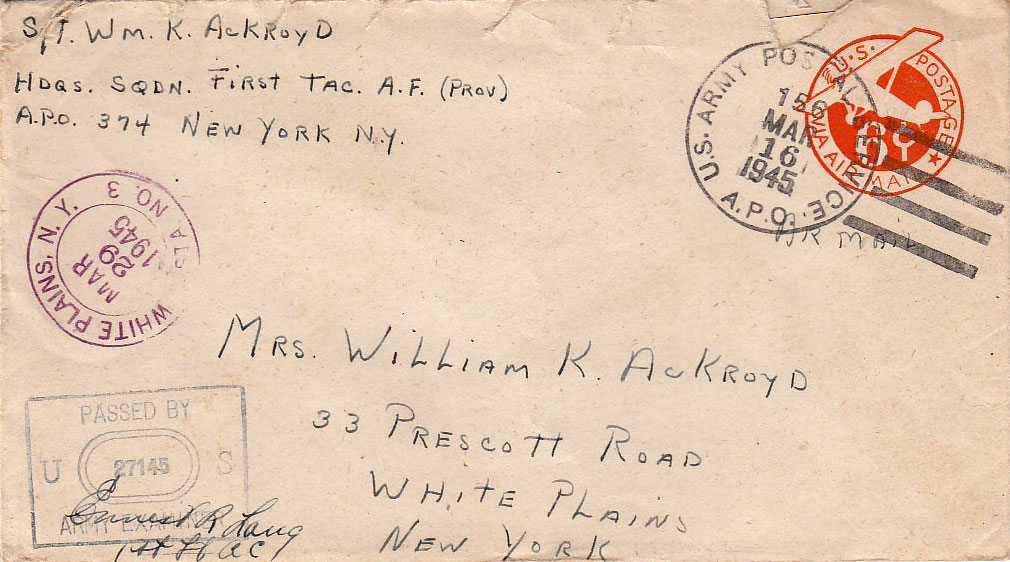 SGT. WM. K. ACKROYD
HDQS. SQDN. FIRST TAC. A.F. (PROV)
A.P.O. 374 NEW YORK N.Y.
U.S. ARMY POSTAL SERVICE
A.P.O.
156
MAR
16
1945
U.S. POSTAGE
6¢
VIA AIR MAIL
AIR MAIL
WHITE PLAINS, N.Y. STA NO. 3
MAR
29
1945
MRS. WILLIAM K. ACKROYD
33 PRESCOTT ROAD
WHITE PLAINS
NEW YORK
PASSED BY
U 27145 S
ARMY EXAMINER
Ernest R Lang
1st Lt AC